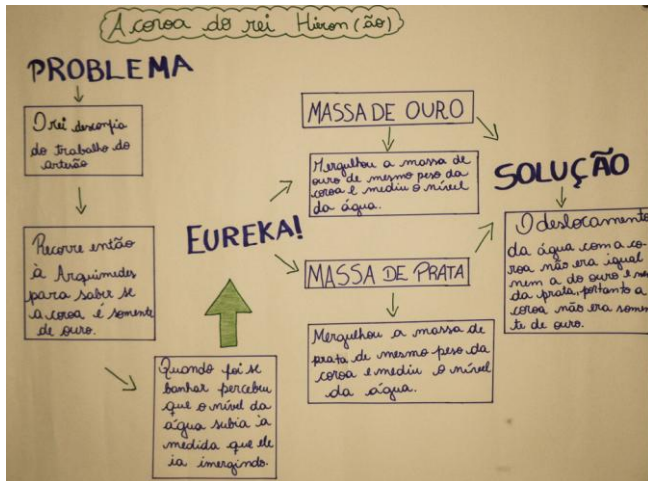 A coroa do rei Hieron (ão)
PROBLEMA
O rei desconfia
do trabalho do
artesão
Recorre então
à Arquimedes
para saber se
a coroa é somente
de ouro.
Quando foi se
banhar percebeu
que o nível da
água subia à
medida que ele
ia imergindo.
EUREKA!
MASSA DE OURO
Mergulhou a massa de
ouro de mesmo peso da
coroa e mediu o nível
da água.
MASSA DE PRATA
Mergulhou a massa de
prata de mesmo peso da
coroa e mediu o nível
da água.
SOLUÇÃO
O deslocamento
da água com a co-
roa não era igual
nem a do ouro e nem
da prata, portanto a
coroa não era somen
te de ouro.